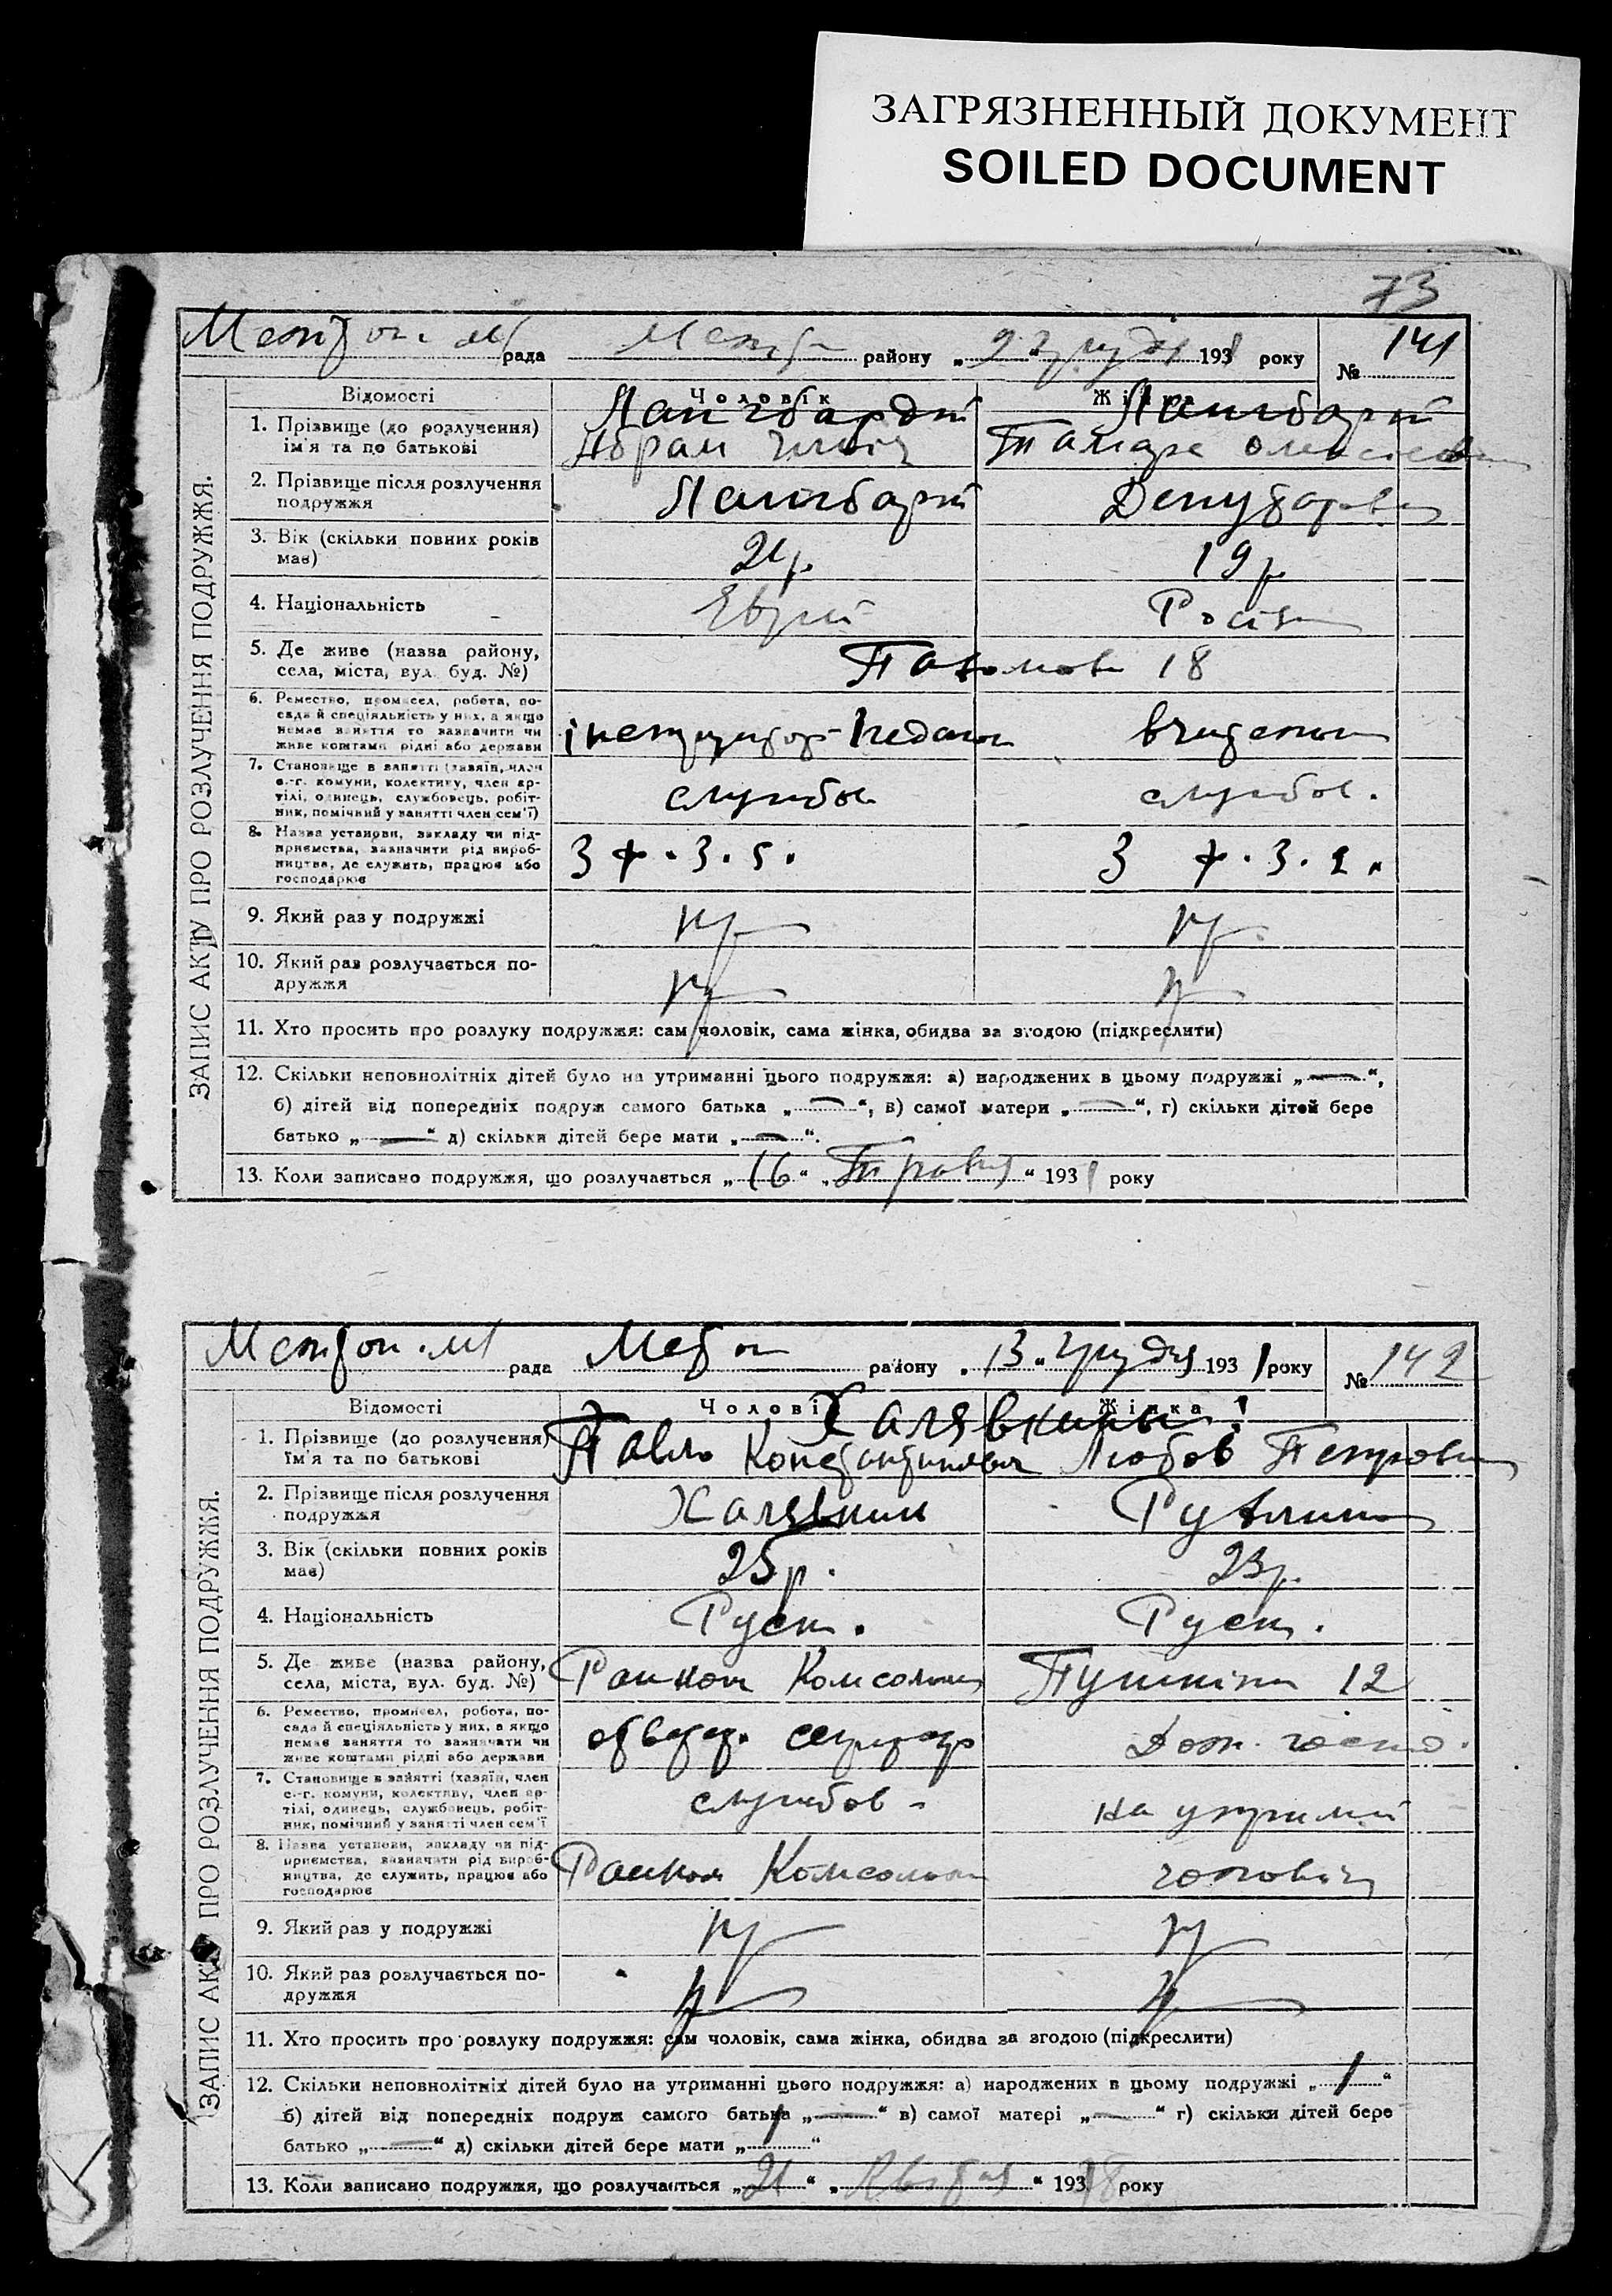 ЗАГРЯЗНЕННЫЙ ДОКУМЕНТ
SOILED DOCUMENT
73
ЗАПИС АКТУ ПРО РОЗЛУЧЕННЯ ПОДРУЖЖЯ.
рада району „2“ грудня 1931 року № 141
Відомості Чоловік Жінка
1. Прізвище (до розлучення)
ім'я та по батькові Абрам Тамара
2. Прізвище після розлучення
подружжя
3. Вік (скільки повних років
має) 21 р. 19 р.
4. Національність Еврей
5. Де живе (назва району,
села, міста, вул. буд. №) 18
6. Ремество, промисел, робота, по-
сада й спеціяльність у них, а якщо
немає заняття то зазначити чи
живе коштами рідні або держави
7. Становище в занятті (хазяїн, член
с.-г. комуни, колективу, член ар-
тілі, одинець, службовець, робіт-
ник, помічний у занятті член сем'ї) службов службов.
8. Назва установи, закладу чи під-
приємства, зазначити рід вироб-
ництва, де служить, працює або
господарює
9. Який раз у подружжі
10. Який раз розлучається по-
дружжя
11. Хто просить про розлуку подружжя: сам чоловік, сама жінка, обидва за згодою (підкреслити)
12. Скільки неповнолітніх дітей було на утриманні цього подружжя: а) народжених в цьому подружжі „—“,
б) дітей від попередніх подруж самого батька „—“, в) самої матери „—“, г) скільки дітей бере
батько „—“ д) скільки дітей бере мати „—“.
13. Коли записано подружжя, що розлучається „16“ „Травня“ 1931 року
ЗАПИС АКТУ ПРО РОЗЛУЧЕННЯ ПОДРУЖЖЯ.
рада району „13“ грудня 1931 року № 142
Відомості Чоловік Жінка
Халявкины
1. Прізвище (до розлучення)
ім'я та по батькові Павло Константинович Любов Петровна
2. Прізвище після розлучення
подружжя Халявкин
3. Вік (скільки повних років
має) 25 р. 23 р.
4. Національність Руск. Руск.
5. Де живе (назва району,
села, міста, вул. буд. №) Райком Комсомолу Пушкіна 12
6. Ремество, промисел, робота, по-
сада й спеціяльність у них, а якщо
немає заняття то зазначити чи
живе коштами рідні або держави секретар
7. Становище в занятті (хазяїн, член
с.-г. комуни, колективу, член ар-
тілі, одинець, службовець, робіт-
ник, помічний у занятті член сем'ї службов. на утриман
8. Назва установи, закладу чи під-
приємства, зазначити рід вироб-
ництва, де служить, працює або
господарює Райком Комсомолу
9. Який раз у подружжі
10. Який раз розлучається по-
дружжя
11. Хто просить про розлуку подружжя: сам чоловік, сама жінка, обидва за згодою (підкреслити)
12. Скільки неповнолітніх дітей було на утриманні цього подружжя: а) народжених в цьому подружжі „1“
б) дітей від попередніх подруж самого батька „—“ в) самої матері „—“ г) скільки дітей бере
батько „—“ д) скільки дітей бере мати „1“
13. Коли записано подружжя, що розлучається „21“ року